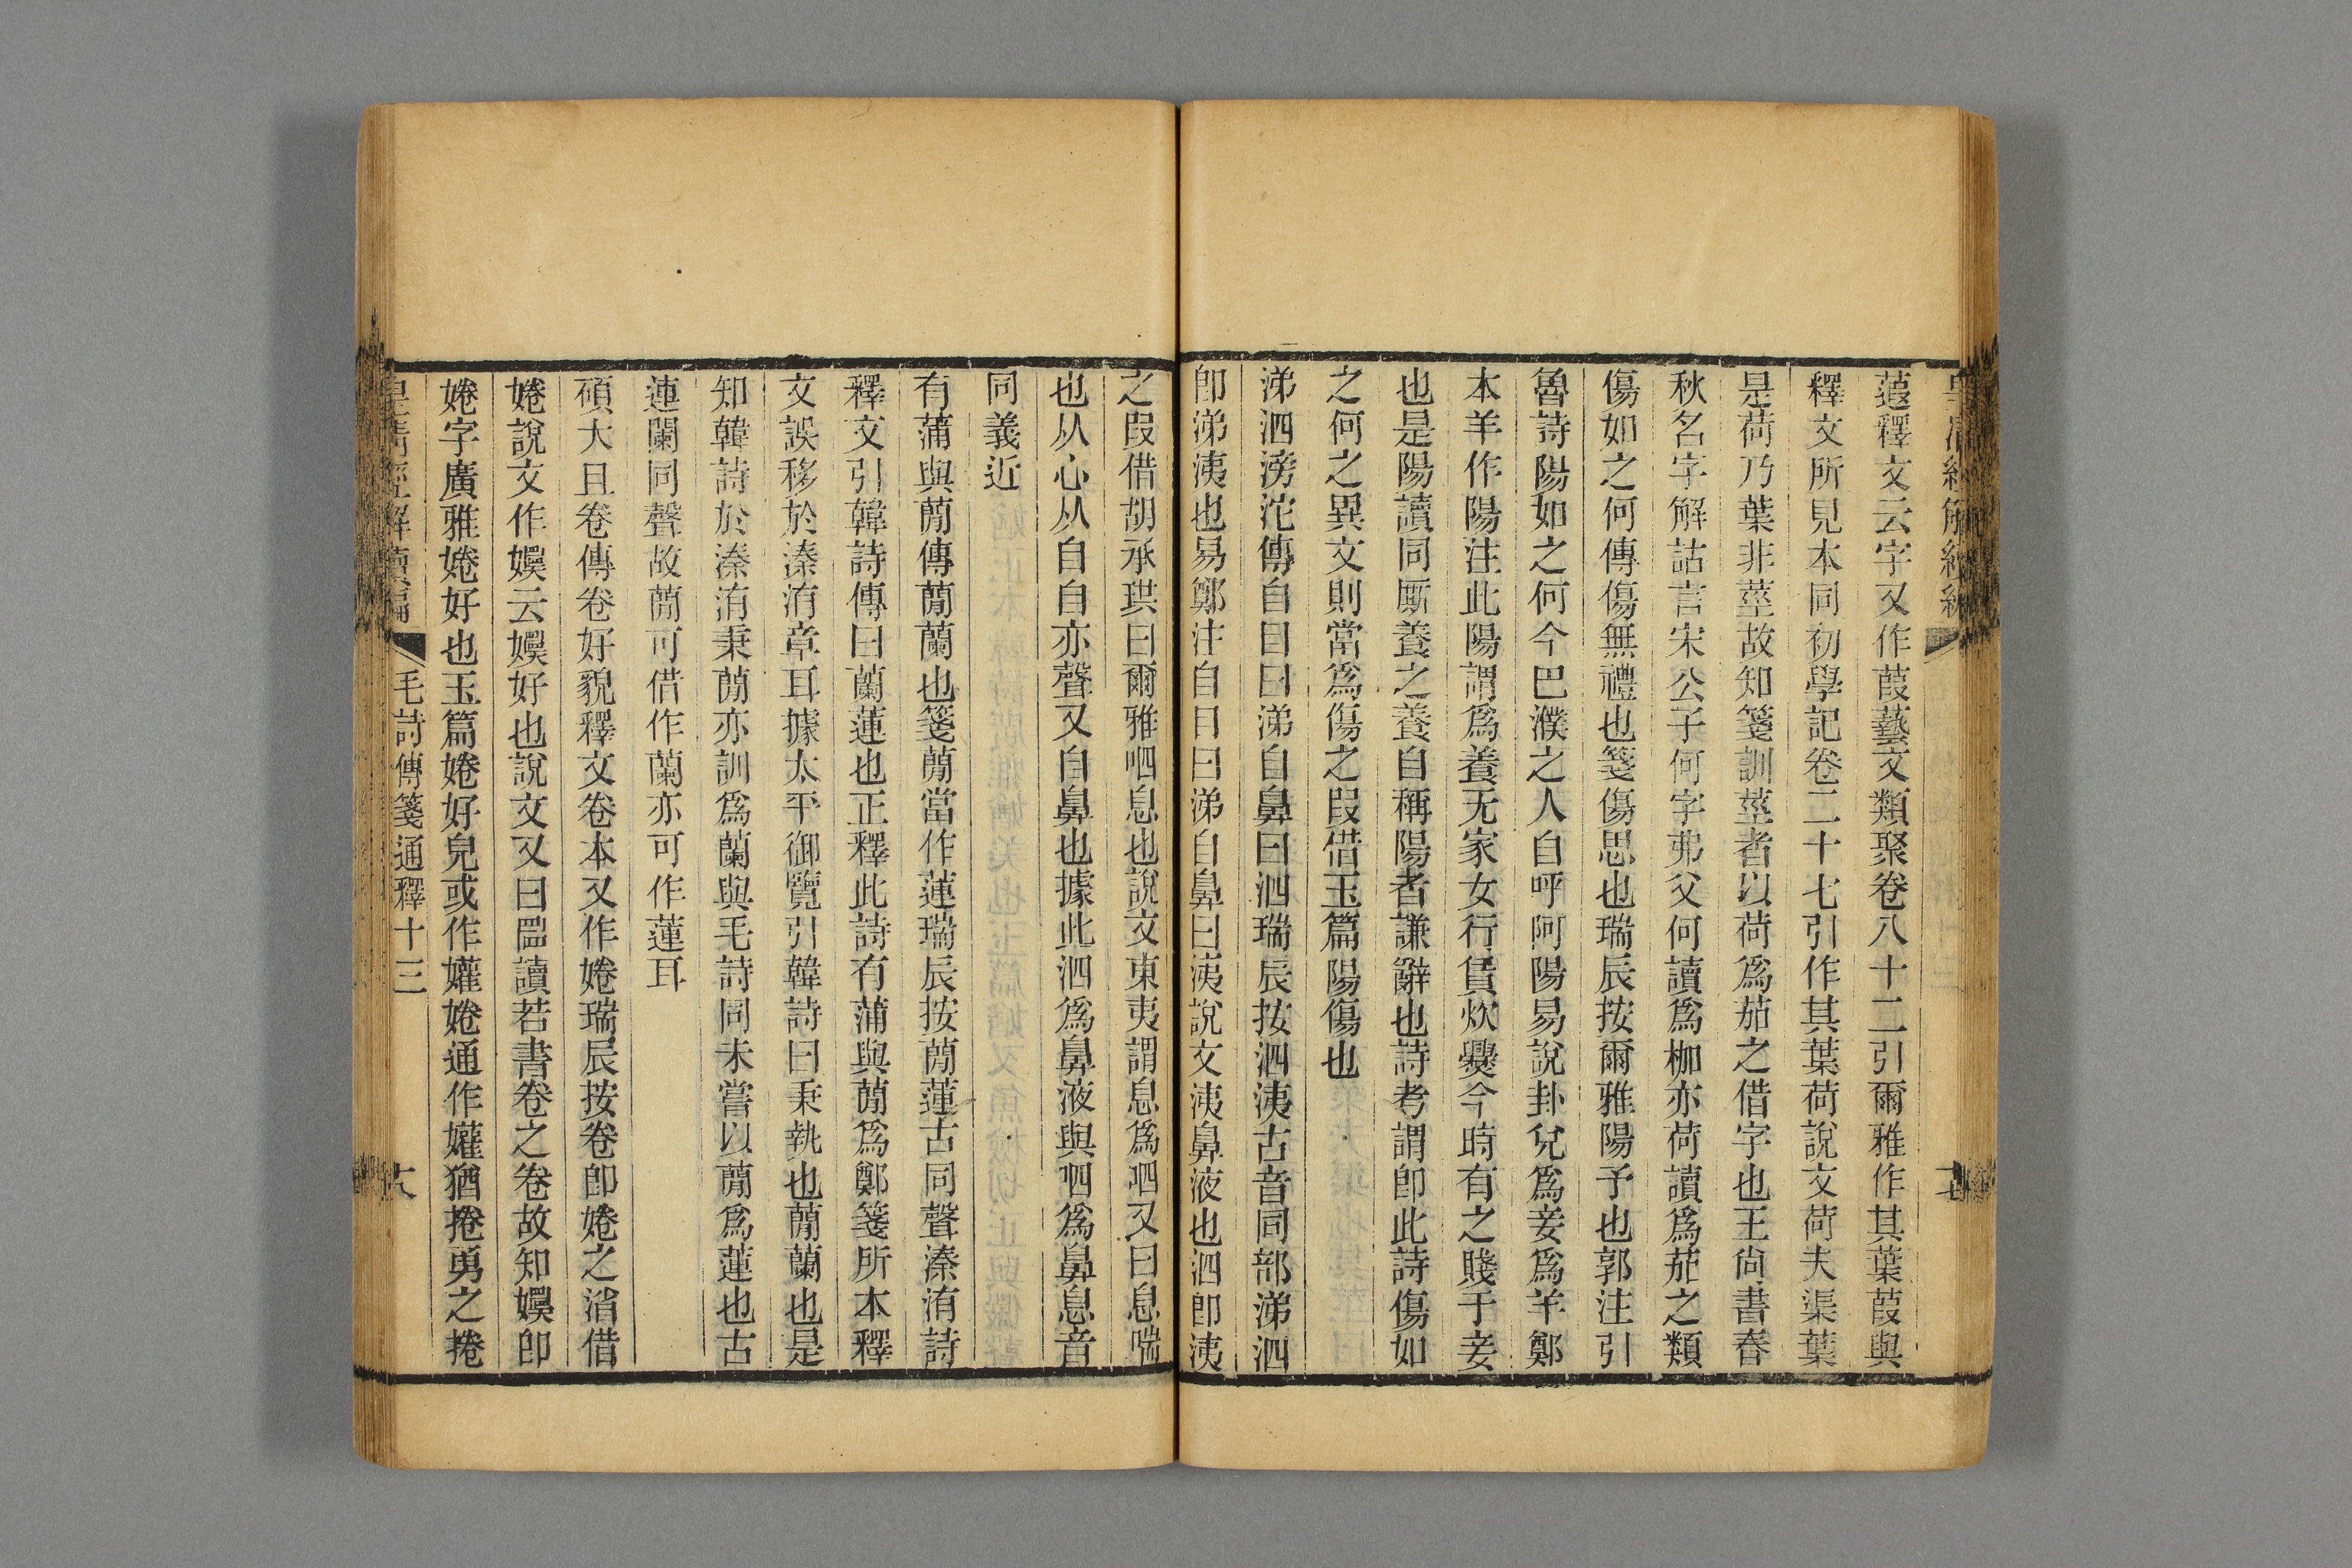 蕸釋文云字又作葭藝文類聚卷八十二引爾雅作其葉葭與
釋文所見本同初學記卷二十七引作其葉荷說文荷夫渠葉
是荷乃葉非莖故知箋訓莖者以荷爲茄之借字也王尙書春
秋名字解詁言宋公子何字弗父何讀爲枷亦荷讀爲茄之類
傷如之何傳傷無禮也箋傷思也瑞辰按爾雅陽予也郭注引
魯詩陽如之何今巴濮之人自呼阿陽易說卦兌爲妾爲羊鄭
本羊作陽注此陽謂爲養无家女行賃炊爨今時有之賤于妾
也是陽讀同厮養之養自稱陽者謙辭也詩考謂卽此詩傷如
之何之異文則當爲傷之叚借玉篇陽傷也
涕泗滂沱傳自目曰涕自鼻曰泗瑞辰按泗洟古音同部涕泗
卽涕洟也易鄭注自目曰涕自鼻曰洟說文洟鼻液也泗卽洟
之叚借胡承珙曰爾雅呬息也說文東夷謂息爲呬又曰息喘
也从心从自自亦聲又自鼻也據此泗爲鼻液與呬爲鼻息音
同義近
有蒲與蕑傳蕑蘭也箋蕑當作蓮瑞辰按蕑蓮古同聲溱洧詩
釋文引韓詩傳曰蘭蓮也正釋此詩有蒲與蕑爲鄭箋所本釋
文誤移於溱洧章耳據太平御覽引韓詩曰秉執也蕑蘭也是
知韓詩於溱洧秉蕑亦訓爲蘭與毛詩同未嘗以蕑爲蓮也古
連闌同聲故蕑可借作蘭亦可作蓮耳
碩大且卷傳卷好貌釋文卷本又作婘瑞辰按卷卽婘之消借
婘說文作嬽云嬽好也說文又曰㘝讀若書卷之卷故知嬽卽
婘字廣雅婘好也玉篇婘好皃或作孉婘通作孉猶捲勇之捲
皇清經解續編
毛詩傳箋通釋十三